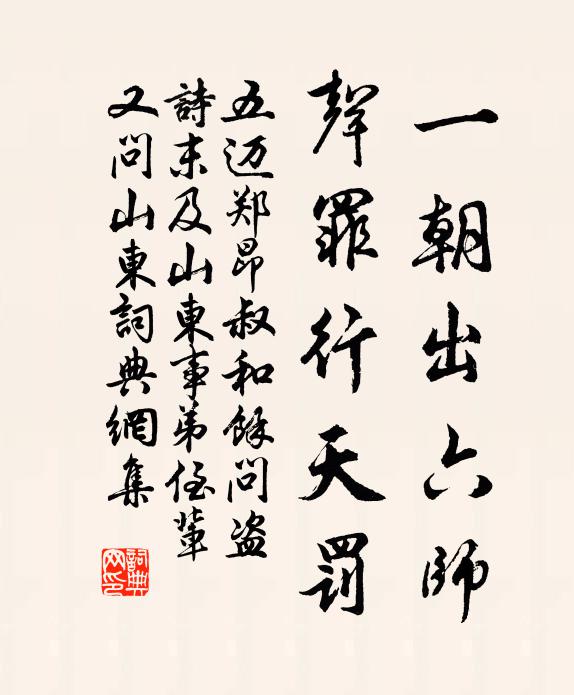 一朝出六师
聲罪行天罰
五迈郑昂叔和餘问盗
詩末及山東事弟侄輩
又问山東詞典網集
詞典网印